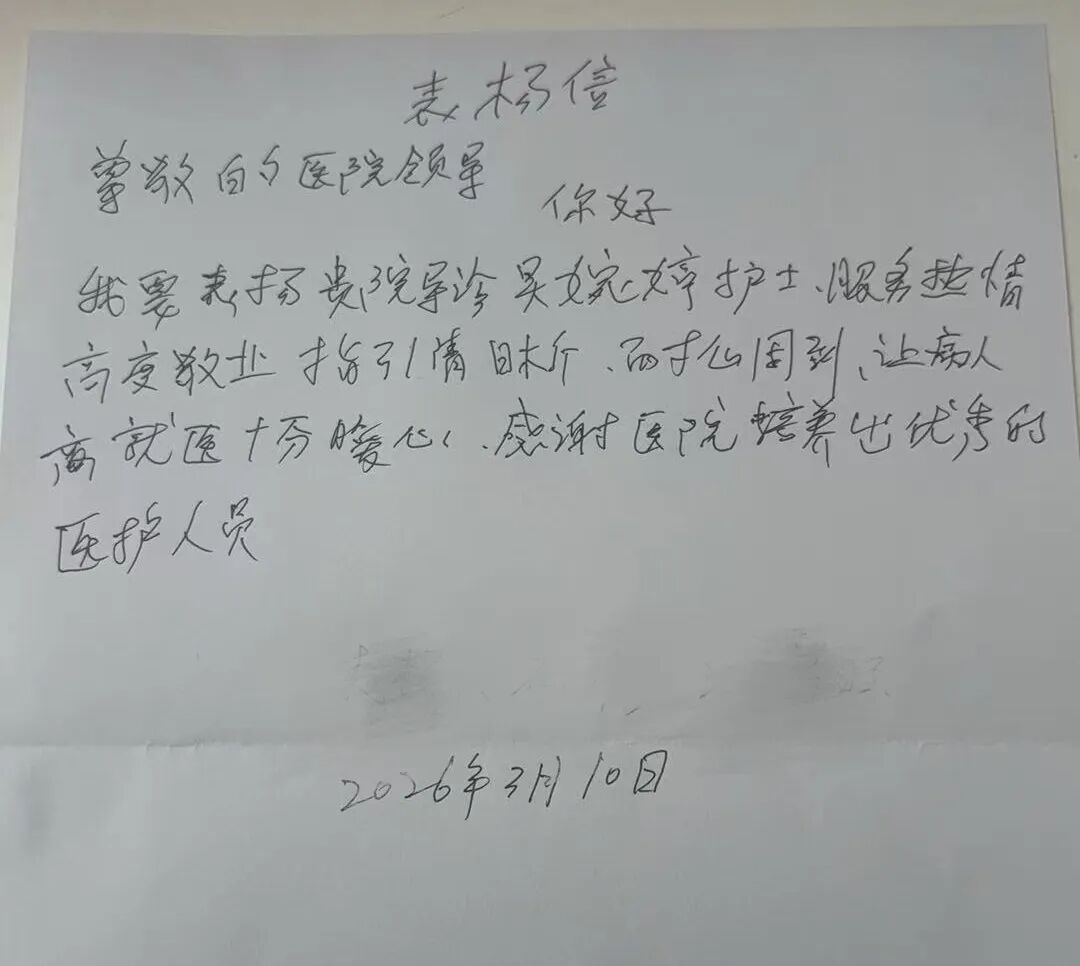 表杨信
尊敬的医院领导
你好
我要表扬贵院导诊吴婉婷护士、服务热情
高度敬业 指引清晰 周到、让病人
就医十分暖心、感谢医院培养出优秀的
医护人员
2026年3月10日